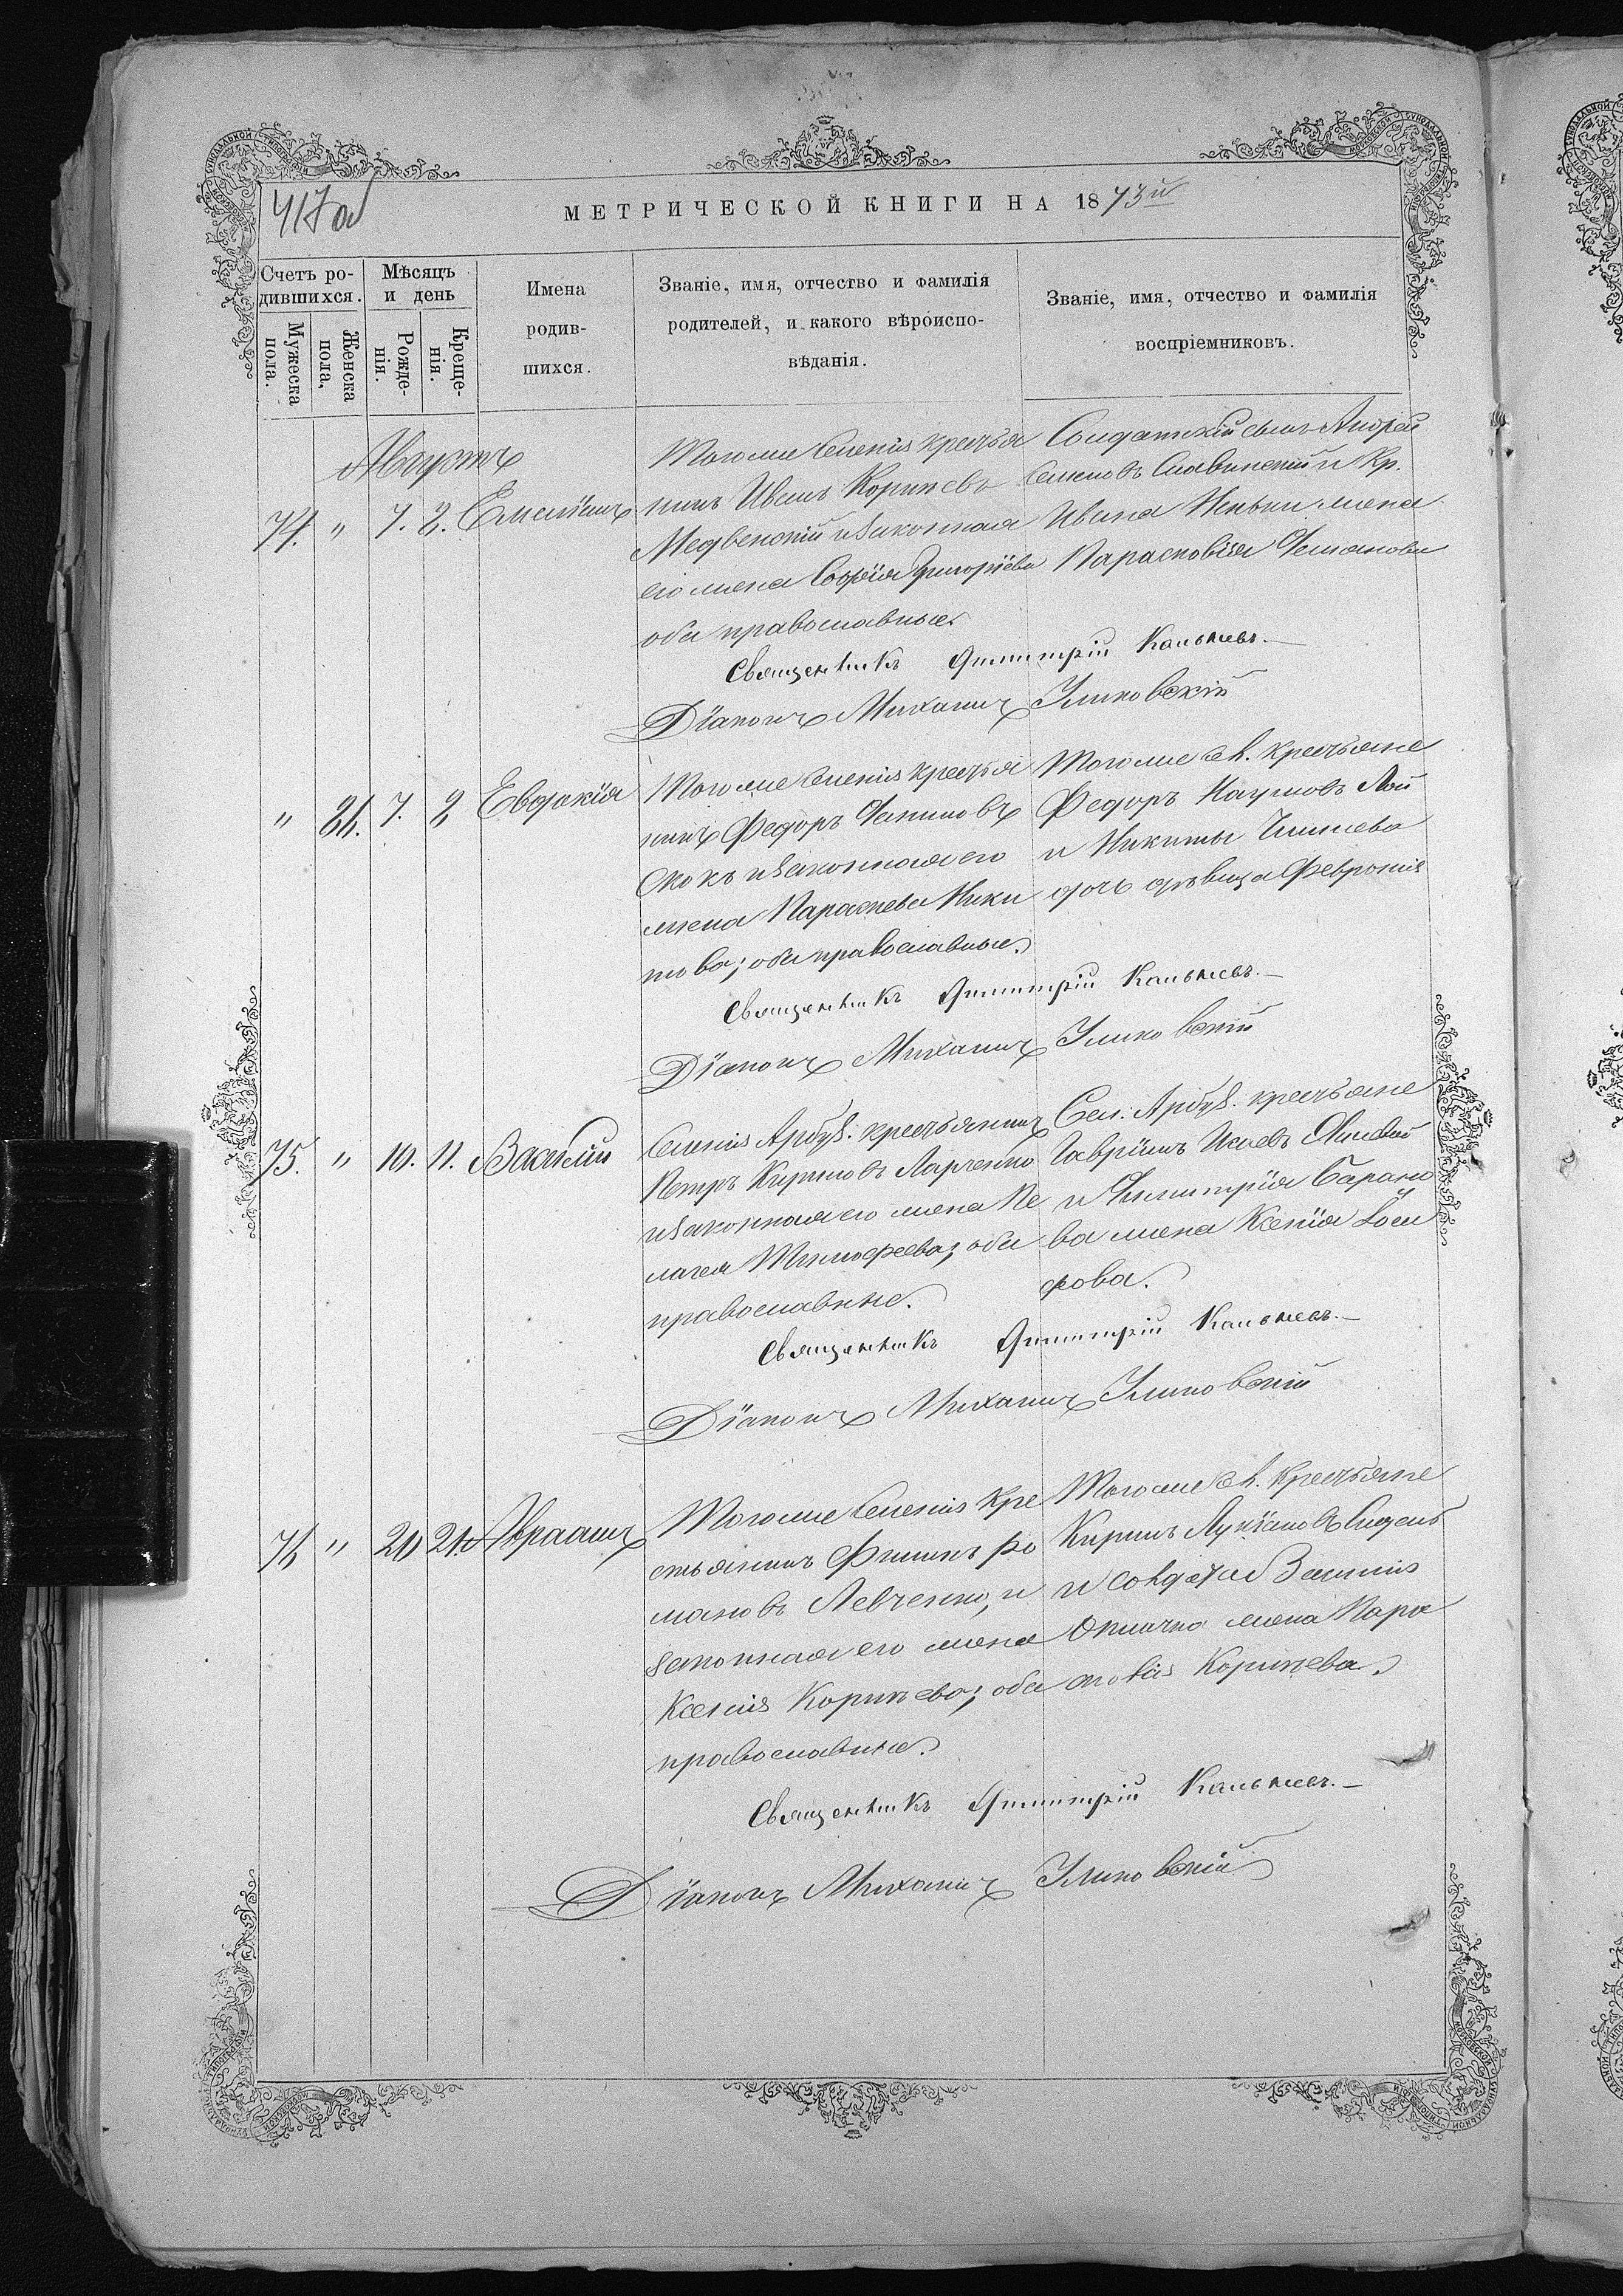 417 об
МЕТРИЧЕСКОЙ КНИГИ НА 1873й
Счетъ ро-
дившихся.
Мужеска
пола.
Женска
пола.
Мѣсяцъ
и день
Рожде-
нія.
Креще-
нія.
Имена
родив-
шихся.
Званіе, имя, отчество и фамилія
родителей, и какого вѣроиспо-
вѣданія.
Званіе, имя, отчество и фамилія
воспріемниковъ.
Августъ
74. " 7. 8. Емеліанъ
Тогоже Селенія крестья
нинъ Иванъ Корнѣевъ
Медвенскій и законная
его жена Софія Григоріева
оба православные.
Солдатскій сынъ Андрей
Семеновъ Славинскій и Кр.
Ивана жена
Парасковія
Священникъ Димитрій
Діаконъ Михаилъ
" 7. 8 Евдокія
Тогоже Селенія крестья
нинъ Федоръ
и законная его
жена Параскева Ники
това; оба православные.
Тогоже сел. крестьяне
Федоръ Наумовъ
и Никиты
дочь дѣвица Февронія
Священникъ Димитрій
Діаконъ Михаилъ
75. " 10. 11. Василій
Селенія Арбуз. крестьянинъ
Петръ Кириловъ Ларченко
и законная его жена Пе
лагея Тимофеева; оба
православные.
Сел. Арбуз. крестьяне
Гавріилъ Исаевъ
и Димитрія Барано
ва жена Ксенія Іоси
фова.
Священникъ Димитрій
Діаконъ Михаилъ
76 " 20 21. Авраамъ
Тогоже Селенія кре
стьянинъ Филипъ Ро
мановъ Левченко, и
законная его жена
Ксенія Корнѣева; оба
православные.
Тогоже сел. крестьяне
Кирилъ Лукіановъ
и солдата
жена Пара
сковія Корнѣева.
Священникъ Димитрій
Діаконъ Михаилъ